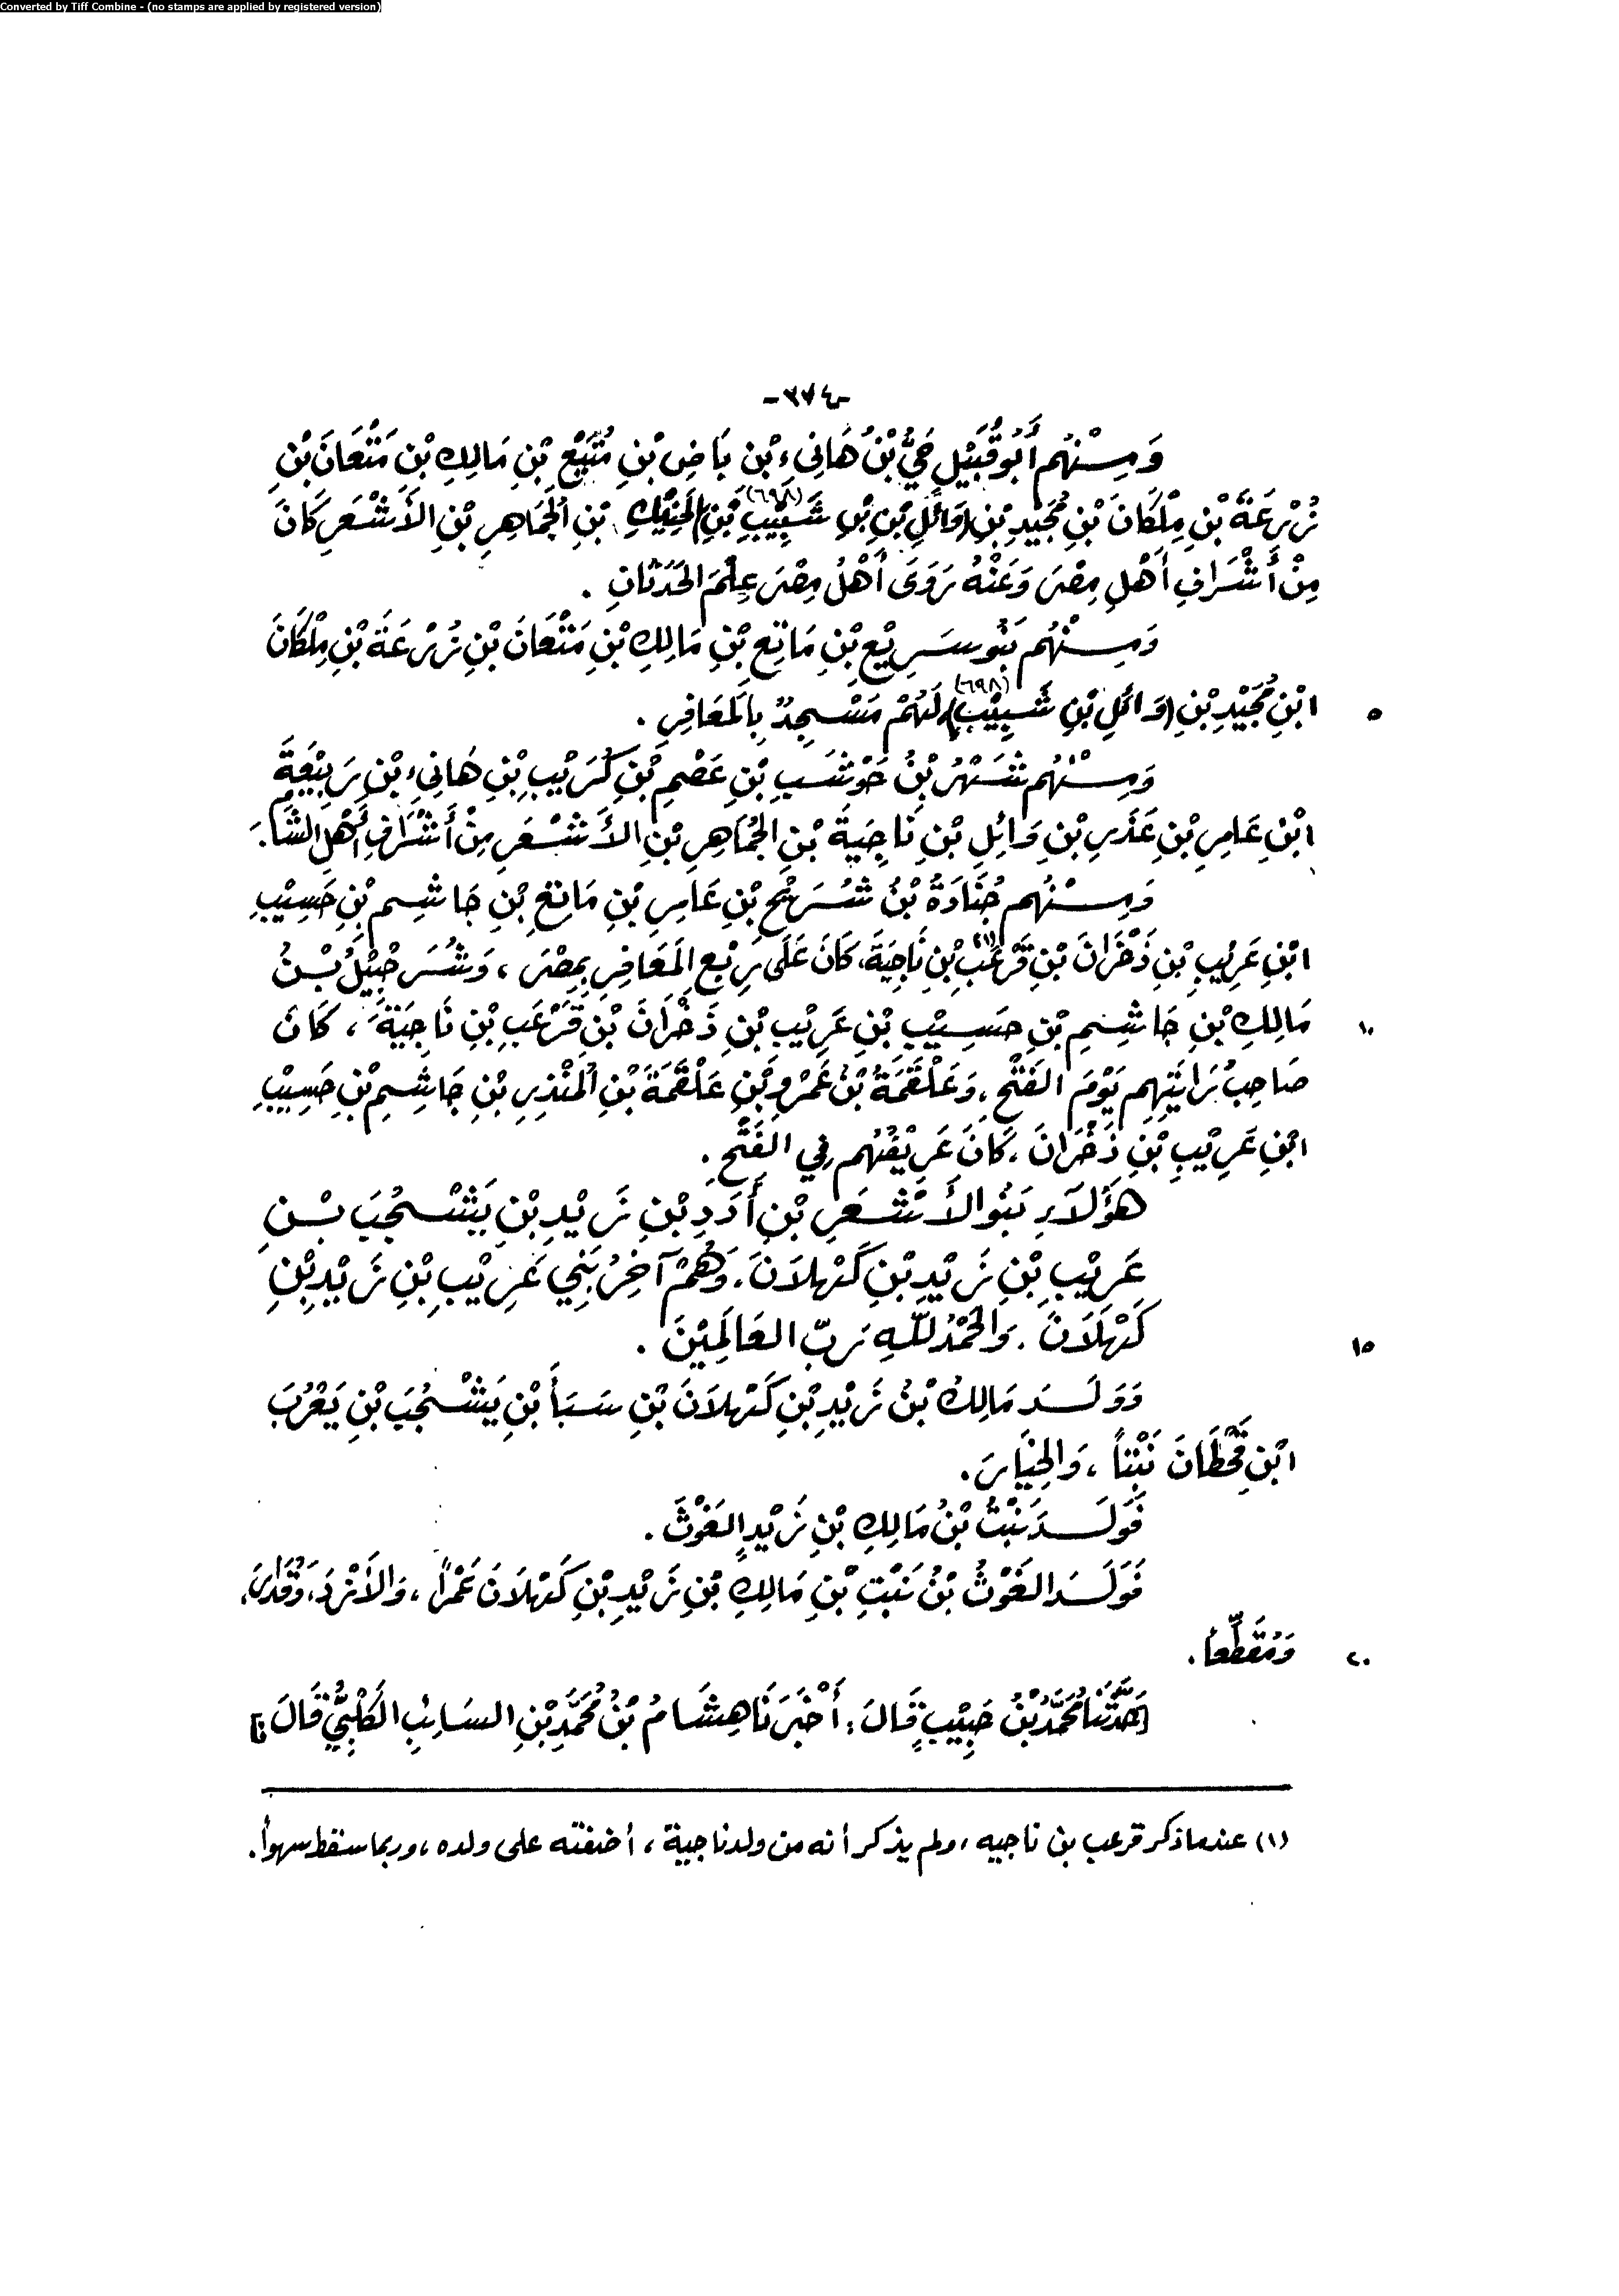 Converted by Tiff Combine - (no stamps are applied by registered version)
-٣٧٤-
وَمِنْهُم أَبُو قُبَيْلٍ حَيُّ بْنُ هَانِىءِ بْنِ بَاضِ بْنِ مُتَيَّعِ بْنِ مَالِكِ بْنِ مَتْعَانَ بْنِ
زُرْعَةَ بْنِ مِلْكَانَ بْنِ مُجَيْدِ بْنِ (وَائِلِ بْنِ بْنِ شَبِيْبِ) (٦٩٨) بْنِ الحَنِيْكِ بْنِ الجُمَاهِرِ بْنِ الأَشْعَرِ كَانَ
مِنْ أَشْرَافِ أَهْلِ مِصْرَ وَعَنْهُ رَوَى أَهْلُ مِصْرَ عِلْمَ الحَدَثَانِ .
وَمِنْهُم بَنُو سَرِيْعِ بْنِ مَاتِعِ بْنِ مَالِكِ بْنِ مَتْعَانَ بْنِ زُرْعَةَ بْنِ مِلْكَانَ
ابْنِ مُجَيْدِ بْنِ (وَائِلِ بْنِ شَبِيْبِ) (٦٩٨) لَهُمْ مَسْجِدٌ بِالمَعَافِرِ . ٥
وَمِنْهُم شَهْرُ بْنُ حَوْشَبِ بْنِ عَصْمِ بْنِ كُرَيْبِ بْنِ هَانِىءِ بْنِ رَبِيْعَةَ
ابْنِ عَامِرِ بْنِ عَدَرِ بْنِ وَائِلِ بْنِ نَاجِيَةَ بْنِ الجُمَاهِرِ بْنِ الأَشْعَرِ مِنْ أَشْرَافِ أَهْلِ الشَّامِ.
وَمِنْهُم جُنَادَةُ بْنُ شُرَيْحِ بْنِ عَامِرِ بْنِ مَانِعِ بْنِ جَاشِمِ بْنِ حَسِيْبِ
ابْنِ عَرِيْبِ بْنِ ذَخْرَانَ بْنِ قَرْعَبِ (١) بْنِ نَاجِيَةَ، كَانَ عَلَى رَبْعِ المَعَافِرِ بِمِصْرَ ، وَشُرَحْبِيْلُ بْنُ
مَالِكِ بْنِ جَاشِمِ بْنِ حَسِيْبِ بْنِ عَرِيْبِ بْنِ ذَخْرَانَ بْنِ قَرْعَبِ بْنِ نَاجِيَةَ ، كَانَ ١٠
صَاحِبَ رَايَتِهِم يَوْمَ الفَتْحِ ، وَعَلْقَمَةُ بْنُ عَمْرِو بْنِ عَلْقَمَةَ بْنِ المُنْذِرِ بْنِ جَاشِمِ بْنِ حَسِيْبِ
ابْنِ عَرِيْبِ بْنِ ذَخْرَانَ ، كَانَ عَرِيْفَهُم فِي الفَتْحِ .
هَؤُلَاءِ بَنُو الأَشْعَرِ بْنِ أُدَدِ بْنِ زَيْدِ بْنِ يَشْجُبَ بْنِ
عَرِيْبِ بْنِ زَيْدِ بْنِ كَهْلَانَ . وَهُمْ آخِرُ بَنِي عَرِيْبِ بْنِ زَيْدِ بْنِ
كَهْلَانَ . وَالحَمْدُ لِلَّهِ رَبِّ العَالَمِيْنَ . ١٥
وَوَلَدَ مَالِكُ بْنُ زَيْدِ بْنِ كَهْلَانَ بْنِ سَبَأَ بْنِ يَشْجُبَ بْنِ يَعْرُبَ
ابْنِ قَحْطَانَ نَبْتاً ، وَالخِيَارَ .
فَوَلَدَ نَبْتُ بْنُ مَالِكِ بْنِ زَيْدٍ الغَوْثَ .
فَوَلَدَ الغَوْثُ بْنُ نَبْتِ بْنِ مَالِكِ بْنِ زَيْدِ بْنِ كَهْلَانَ عَمْراً ، وَالأَزْدَ ، وَقُدَارَ ،
وَمُقَطِّعاً . ٢٠
[حَدَّثَنَا مُحَمَّدُ بْنُ حَبِيْبٍ قَالَ : أَخْبَرَنَا هِشَامُ بْنُ مُحَمَّدِ بْنِ السَائِبِ الكَلْبِيُّ قَالَ :]
(١) عندما ذكر قرعب بن ناجيه ، ولم يذكر أنه من ولد ناجية ، أضفته على ولده ، وربما سقط سهواً .